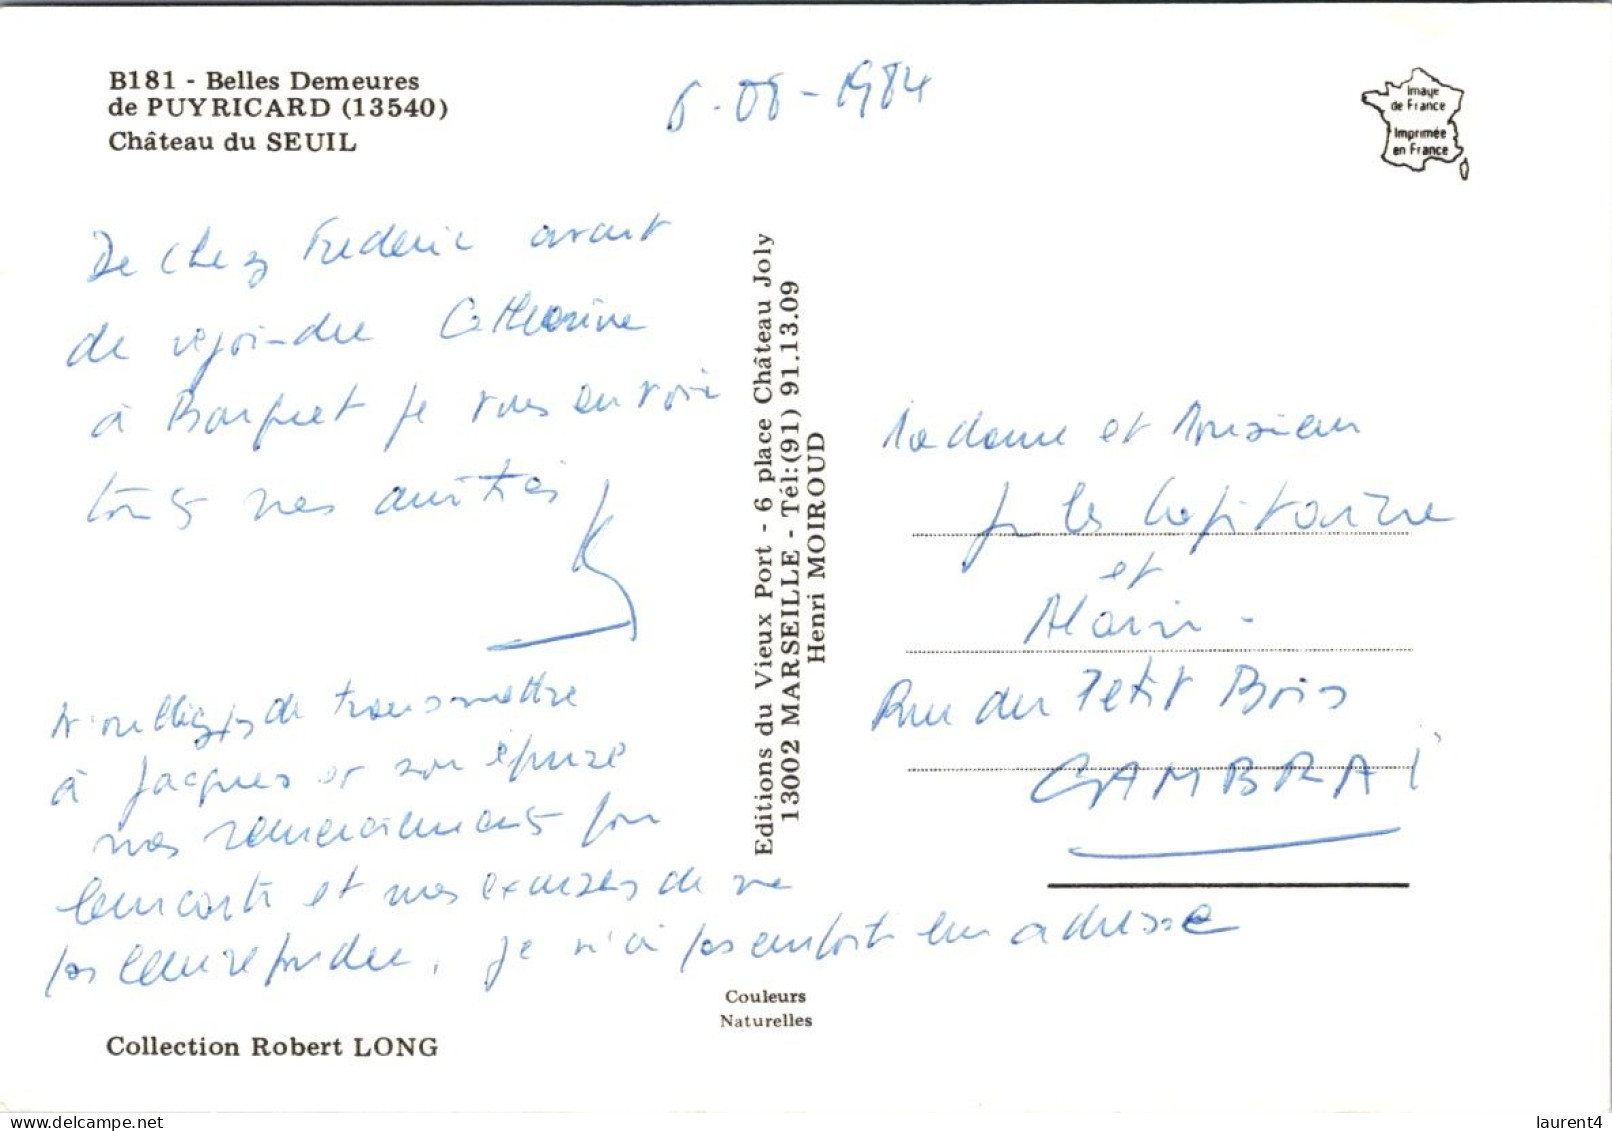 B181 - Belles Demeures
de PUYRICARD (13540)
Château du SEUIL
6-08-1984
Image
de France
Imprimée
en France
De chez Frederic avant
de rejoindre Catherine
à je vous envoie
tous nos amitiés
N'oubliez pas de transmettre
à Jacques et son épouse
nos remerciements pour
leur carte et nos excuses de ne
pas leur repondre, je n'ai pas emporté leur adresse
Editions du Vieux Port - 6 place Château Joly
13002 MARSEILLE - Tél:(91) 91.13.09
Henri MOIROUD
Madame et Monsieur
et
Alain -
Rue du Petit Bois
CAMBRAI
Couleurs
Naturelles
Collection Robert LONG
laurent4